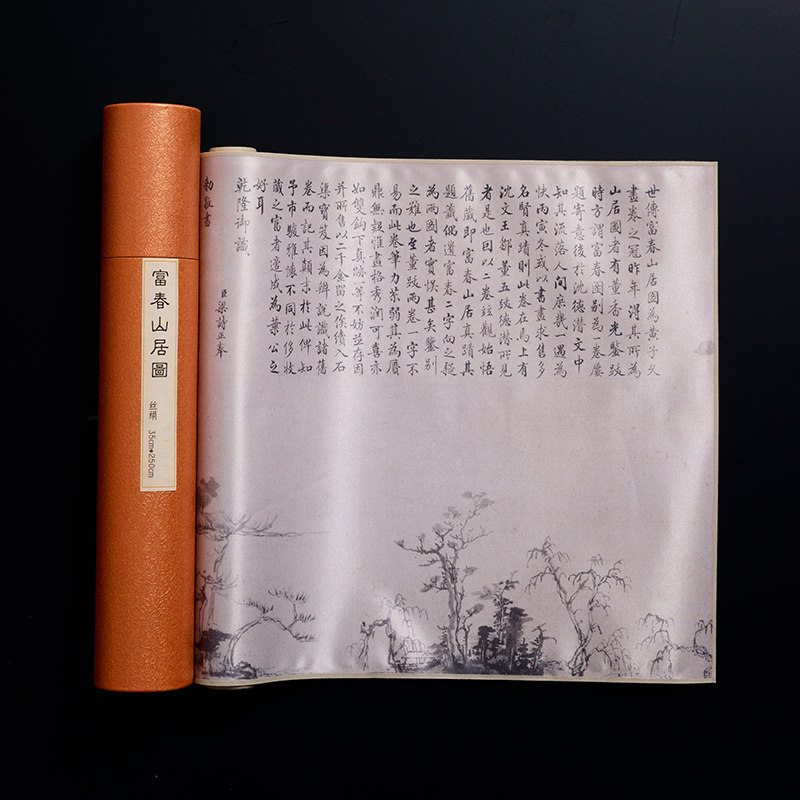 世傳富春山居圖為黄子久
畫卷之冠昨年得其所為
山居圖者有董香光鑒跋
時方謂富春圖别為一卷屢
題寄意後於沈德潜文中
知其流落人間庶幾一遇為
快丙寅冬或以書畫求售多
名賢真蹟則此卷在焉上有
沈文王鄒董五跋德潜所見
者是也因以二卷竝觀始悟
舊藏即富春山居真蹟其
題籤偶遺富春二字向之疑
為兩圖者實悞甚矣鑒别
之難也至董跋兩卷一字不
易而此卷筆力苶弱其為贋
鼎無疑惟畫格秀潤可喜亦
如雙鈎下真跡一等不妨並存因
并所售以二千金留之俟續入石
渠寶笈因為辯説識諸舊
卷而記其顛末於此俾知
予市駿雅懷不同於侈收
藏之富者遣成為葉公之
好耳
乾隆御識
臣梁詩正奉
勅敬書
富春山居圖
丝绢 35cm*250cm